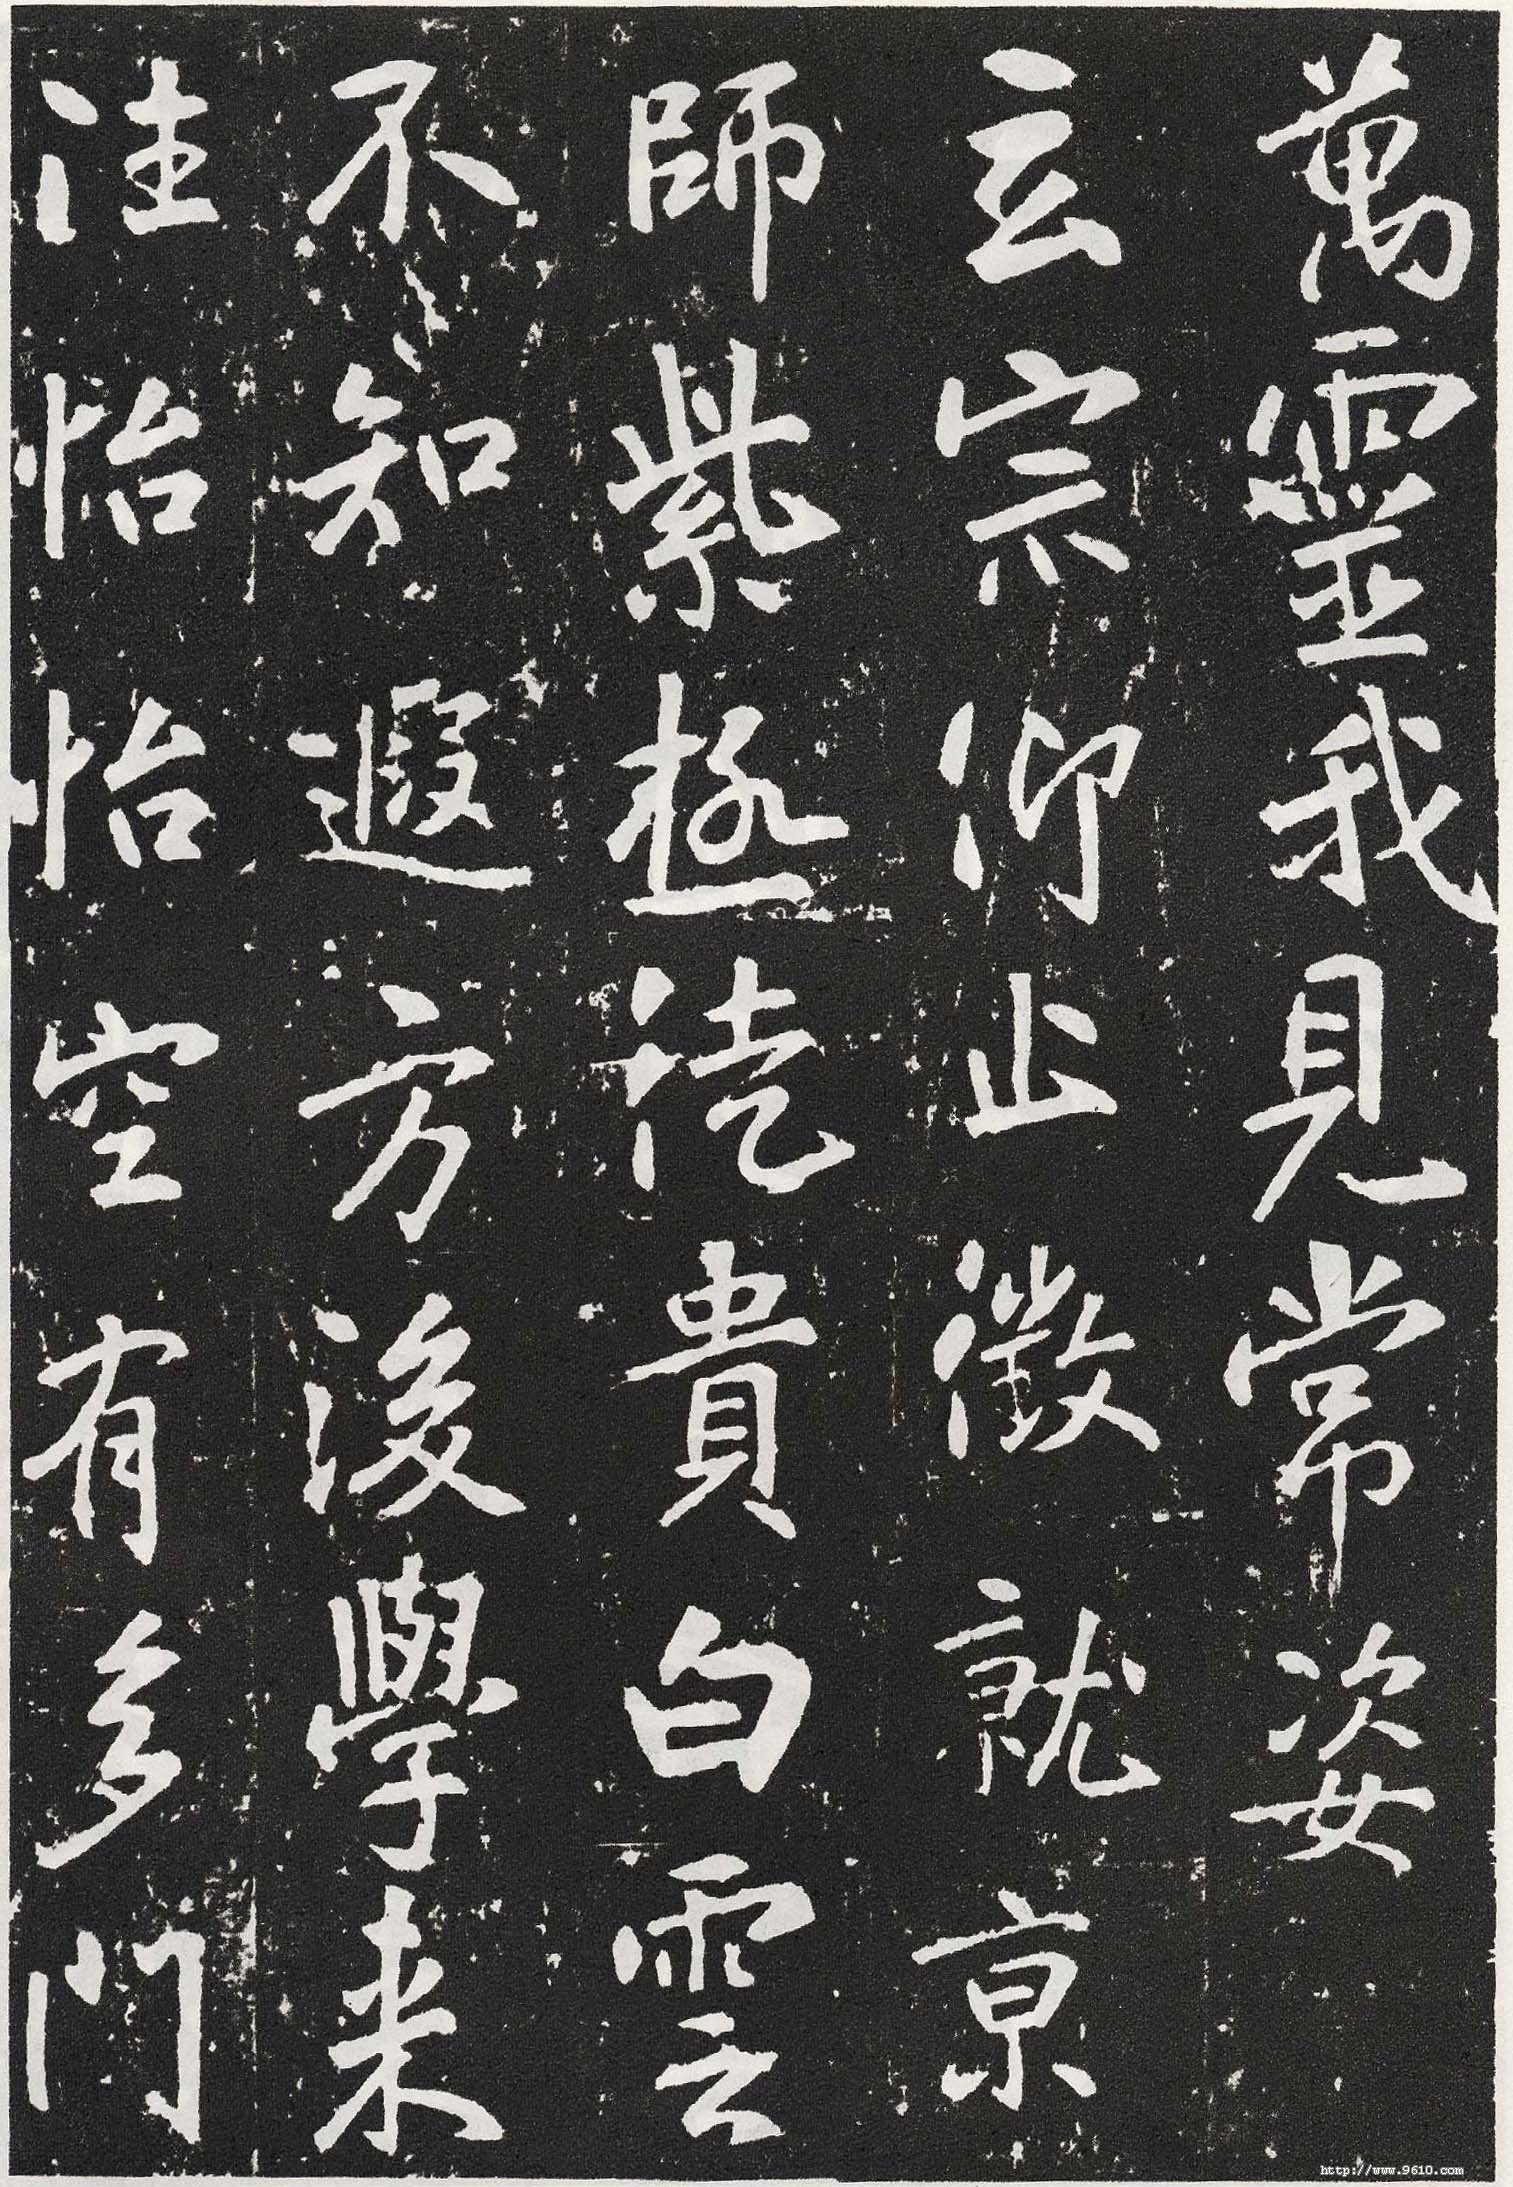 萬靈我見常姿
玄宗仰止徵就京
師紫極徙貴白雲
不知遐方後學来
往怡怡空有多門
http://www.9610.com